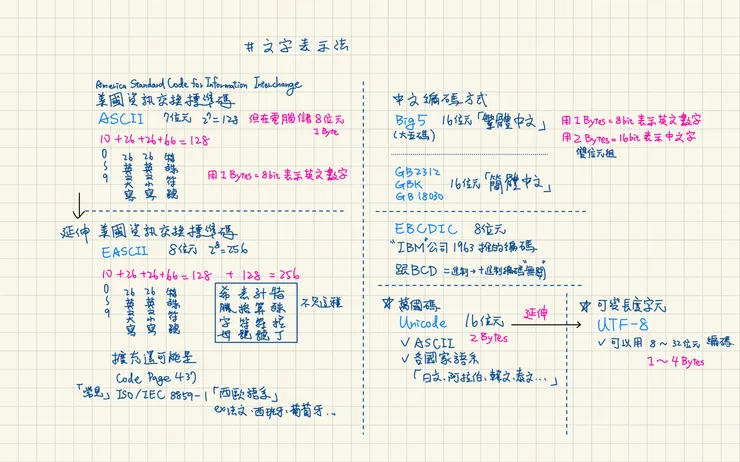 #文字表示法
America Standard Code for Information Interchange
美國資訊交換標準碼
ASCII 7位元 2⁷=128 但在電腦儲8位元
1 Byte
10+26+26+66=128
0 26 26 特
英 英 殊
9 文 文 符
大 小 號
寫 寫
用1 Bytes=8bit表示英文數字
延伸 美國資訊交換標準碼
EASCII 8位元 2⁸=256
10+26+26+66=128 + 128=256
0 26 26 特
英 英 殊
9 文 文 符
大 小 號
寫 寫
希表計錯
臘格算殊
字符符拉
母號號丁
不足這種
擴充還可能是
Code Page 437
「常見」ISO/IEC 8859-1「西歐語系」
ex法文、西班牙、葡萄牙...
中文編碼方式
Big5 16位元「繁體中文」
(大五碼)
用1 Bytes=8bit表示英文數字
用2 Bytes=16bit表示中文字
雙位元組
GB2312
GBK 16位元「簡體中文」
GB18030
EBCDIC 8位元
"IBM"公司1963推的編碼
跟BCD =進制→十進制編碼"無關"
萬國碼
Unicode 16位元
2 Bytes
✓ASCII
✓各國家語系
「日文、阿拉伯、韓文、泰文...」
延伸
可變長度字元
UTF-8
✓可以用 8~32位元 編碼
1~4 Bytes